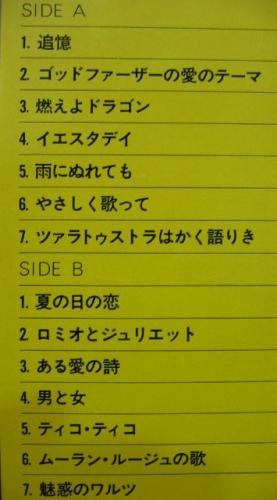 SIDE A
1. 追憶
2. ゴッドファーザーの愛のテーマ
3. 燃えよドラゴン
4. イエスタデイ
5. 雨にぬれても
6. やさしく歌って
7. ツァラトゥストラはかく語りき
SIDE B
1. 夏の日の恋
2. ロミオとジュリエット
3. ある愛の詩
4. 男と女
5. ティコ・ティコ
6. ムーラン・ルージュの歌
7. 魅惑のワルツ